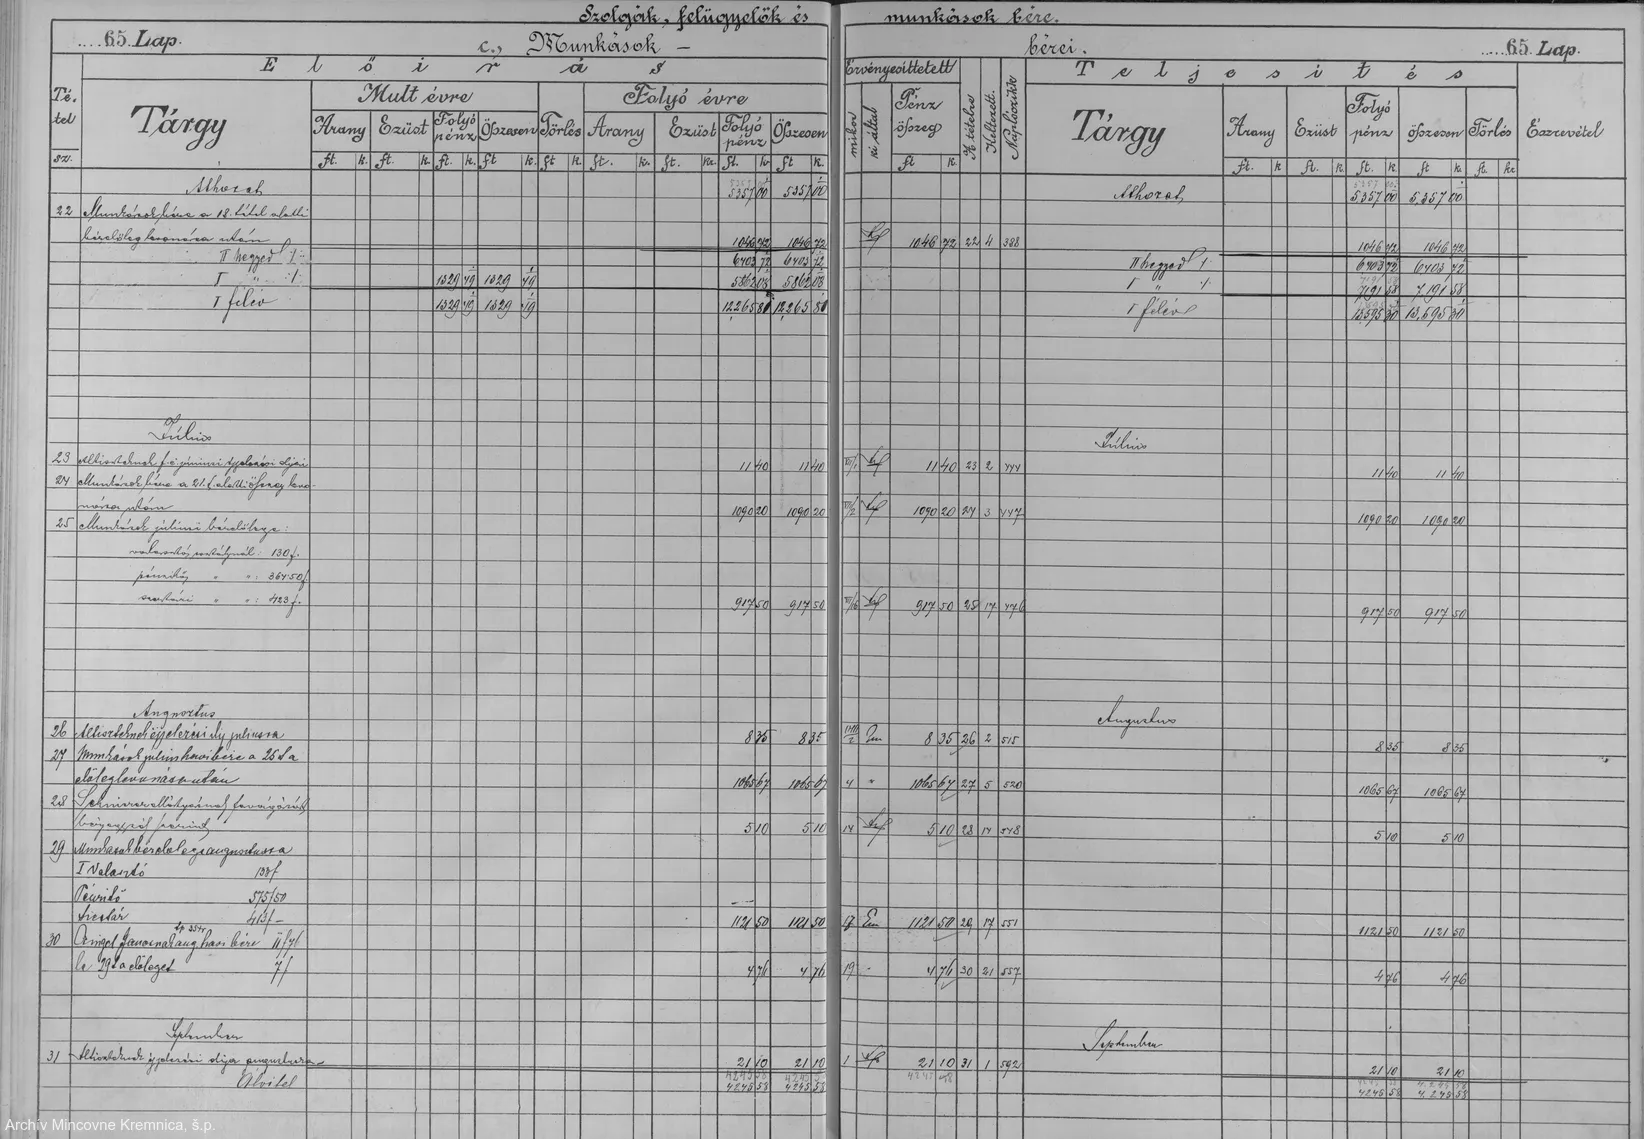 Szolgák, felügyelők és munkások bére.
65. Lap.
c., Munkások – bérei.
65. Lap.
Előirás
Té-
tel
sz.
Tárgy
Mult évre
Folyó évre
Arany Ezüst Folyó pénz Összesen Törlés Arany Ezüst Folyó pénz Összesen
ft. k. ft. k. ft. k. ft k. ft k. ft. kr. ft. kr. ft. kr ft k.
Érvényesíttetett
mikor ki által Pénz összeg A tételre Keltezett. Naplószáma
ft k.
Teljesités
Tárgy Arany Ezüst Folyó pénz összesen Törlés Észrevétel
ft. k ft. k. ft. k ft k. ft. kr
Áthozat 5357 00 5357 00
Áthozat 5357 00 5,357 00
22 Munkások bére a 18. tétel alatti
bérelőleg levonása után 1046 72 1046 72
1046 72 22 4 388
1046 72 1046 72
II negyed 6403 72 6403 72
II negyed 6403 72 6403 72
I " 1329 49 1329 49 5862 08 5862 08
I " 7191 58 7191 58
I félév 1329 49 1329 49 12265 80 12265 80
I félév 13595 30 13,595 30
Július
Július
23 Altiszteknek 11 40 11 40
11 40 23 2 444
11 40 11 40
24 Munkások bére a 21. t. alatti összeg levo-
nása után 1090 20 1090 20
1090 20 24 3 447
1090 20 1090 20
25 Munkások júliusi bérelőlege:
130 f.
" " : 364.50 f
" " : 423 f. 917 50 917 50
917 50 25 17 476
917 50 917 50
Augusztus
Augusztus
26 Altiszteknek éjjelezési díj juliusra 8 35 8 35
8 35 26 2 515
8 35 8 35
27 Munkások julius havi bére a 25 t a
előleg levonása után 1065 67 1065 67
4 " 1065 67 27 5 520
1065 67 1065 67
28 5 10 5 10
14 5 10 28 14 548
5 10 5 10
29 Munkások bérelőlege augusztusra
I Választó 133 f
Pénzítő 575 f 50
413 f – 1121 50 1121 50
17 Em 1121 50 29 17 551
1121 50 1121 50
30 Janosnak aug havi bére 11 f 76
le 29 t a előleget 7 f 4 76 4 76
19 4 76 30 21 557
4 76 4 76
September
September
31 Altiszteknek éjjelezési díja augusztusra 21 10 21 10
1 21 10 31 1 592
21 10 21 10
Átvitel 4245 58 4245 58
4245 58 4,245 58
Archív Mincovne Kremnica, š.p.